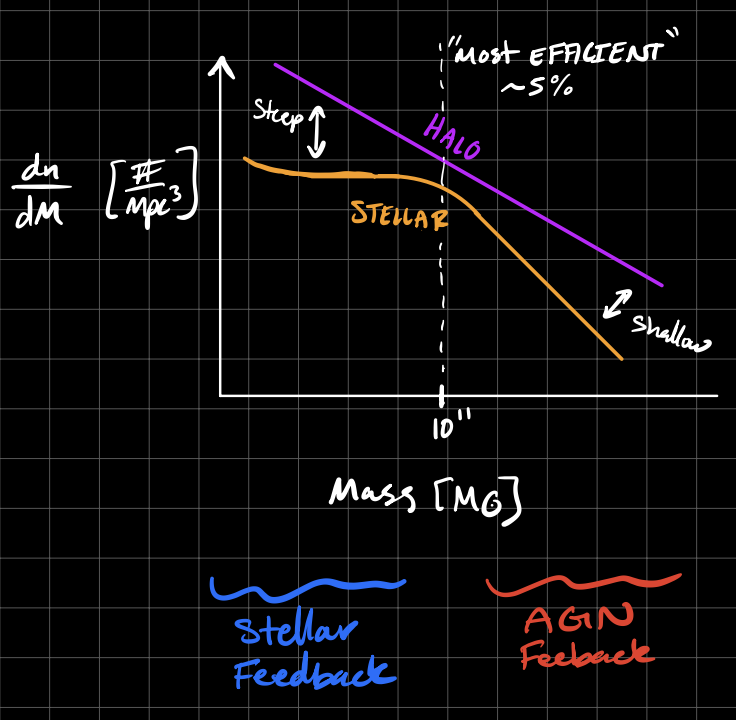 "Most EFFICIENT"
~5%
Steep
HALO
dn/dM [#/Mpc³]
STELLAR
Shallow
10¹¹
Mass [M⊙]
Stellar
Feedback
AGN
Feeback